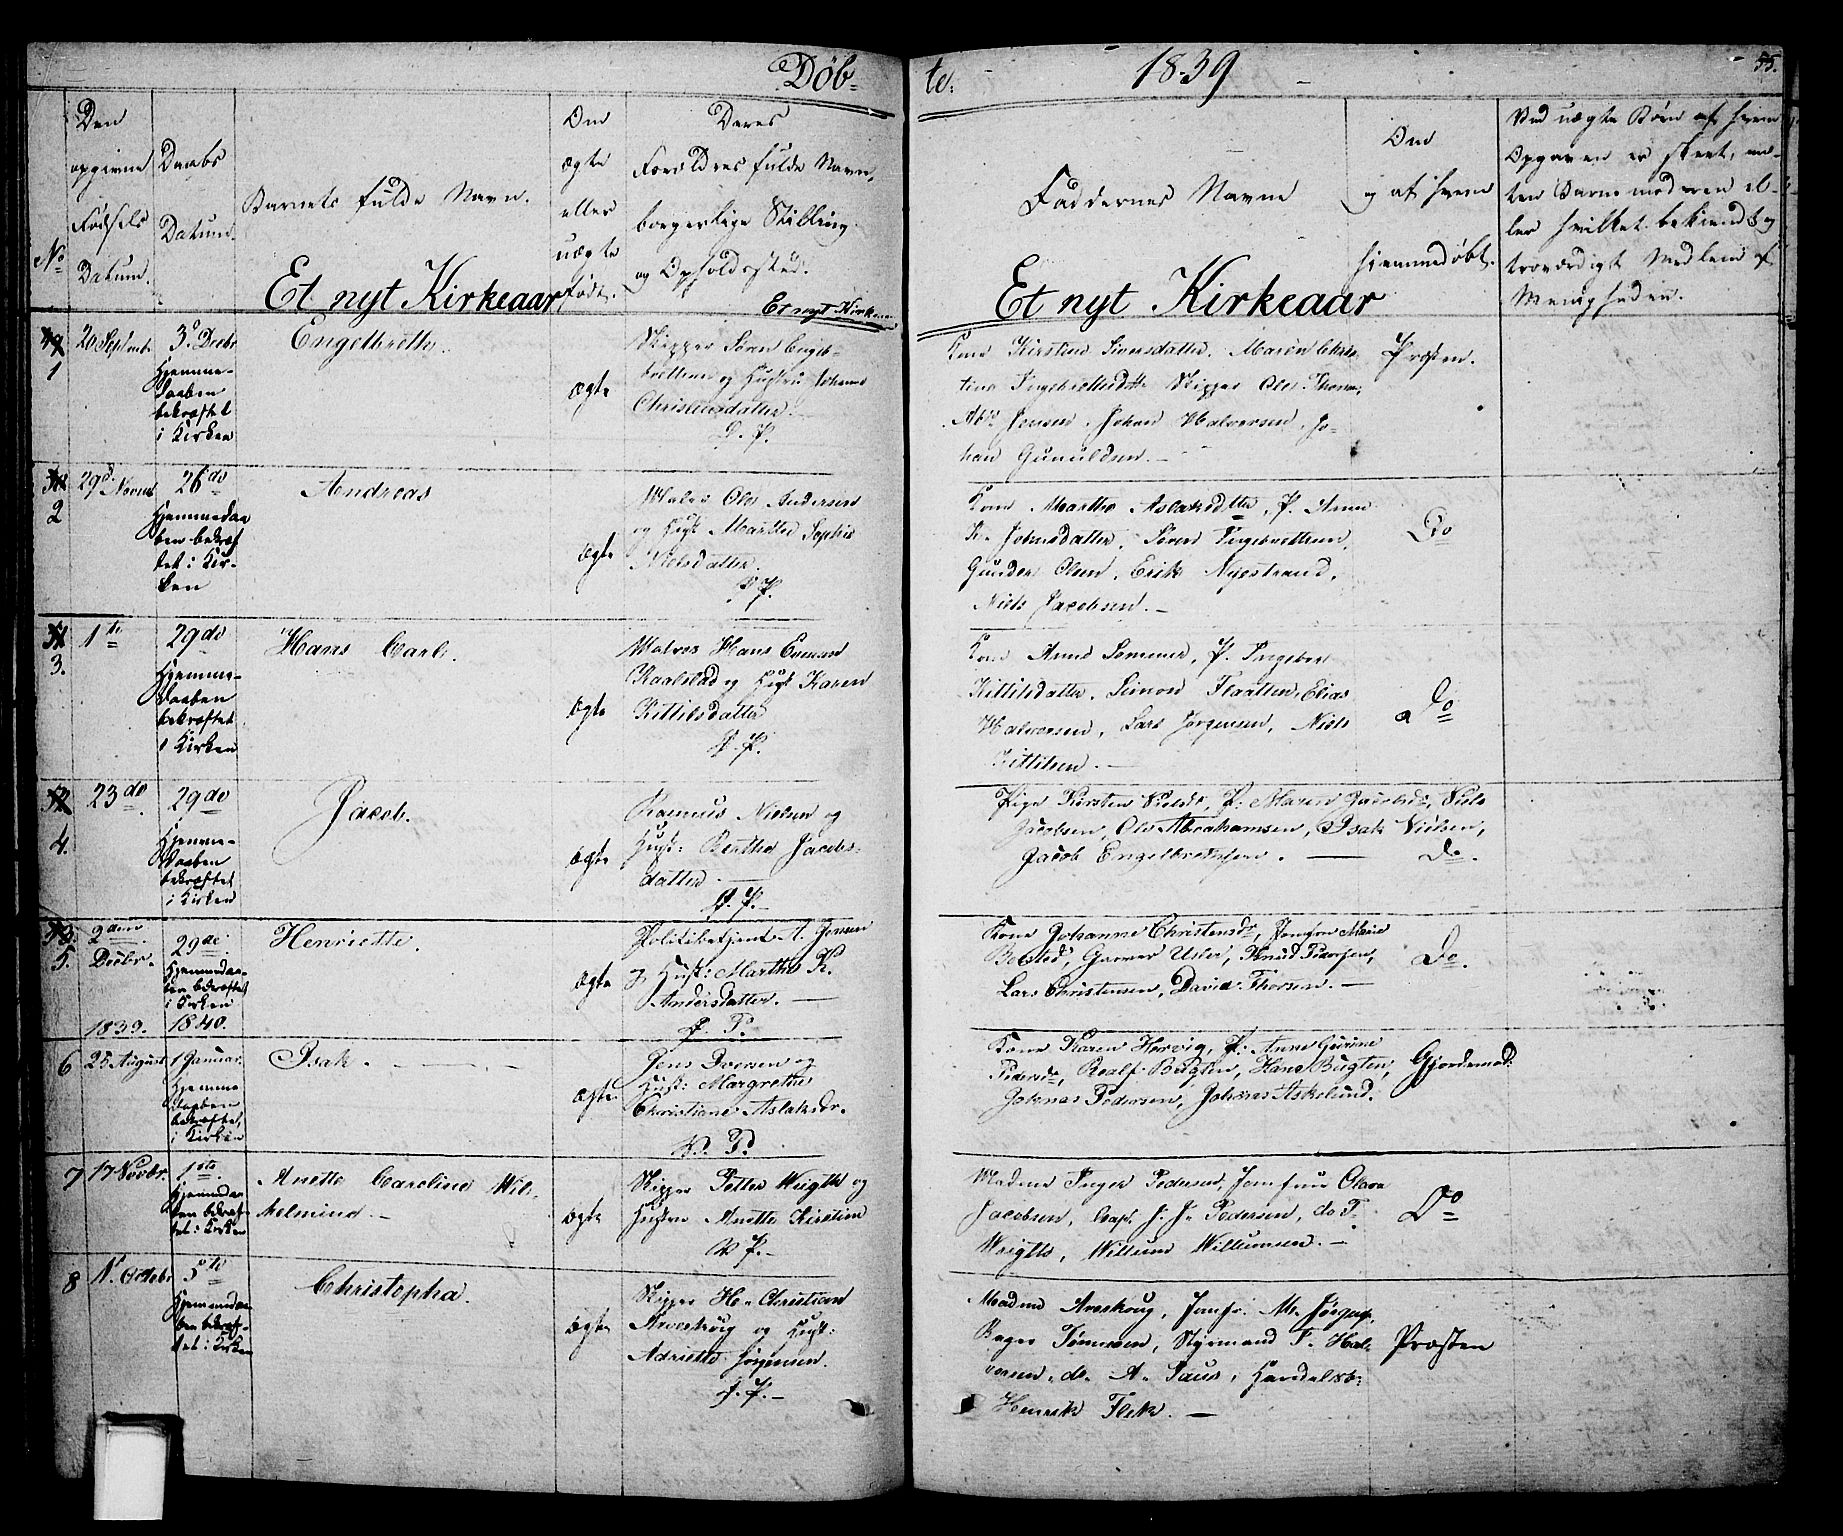 Døb-
te.
1839
55.
No
Den
opgivne
Fødsels
Datum.
Daabs
Datum.
Barnets fulde Navn.
Om
ægte
eller
uægte
født.
Deres
Forældres fulde Navn,
borgerlige Stilling
og Opholdssted.
Faddernes Navne
Om
og af hvem
hjemmedøbt.
Ved uægte Børn af hvem
Opgaven er skeet, en-
ten Barnemoderen el-
ler hvilket bekiendt og
troværdigt Medlem af
Menigheden.
Et nyt Kirkeaar
Et nyt
Et nyt Kirkeaar
1
20 Septembr
3º Decbr
Hjemme-
daaben
bekræftet
i Kirken
Engelbreth.
ægte
Skipper Søren Engel-
brettsen og Hustru Johanne
Christensdatter.
Kone Kirstine Siversdatter. Maren Chris-
tine Skipper Ole
Jensen. Johan Halvorsen. Jo-
han Gunuldsen.
Præsten.
2
29d Novemb
26 do
Hjemmedaa
ben bekræf
tet i Kir-
ken
Andreas
ægte
Ole Andersen
og Hust Marthe Sophie
Nielsdatter.
Kone Marthe Aslaksdatter, P. Anne
K. Johnsdatter. Søren Ingebrettsen,
Gunder Olsen, Erik Nyestrand,
Niels Jacobsen.
Do
3.
1te
29 do
Hjemme-
daaben
bekræftet
i Kirken
Hans Carl.
ægte
Hans
og Hust Karen
Kittilsdatter
Kone Anne P. Ingebor
Kittilsdatter. Simon Flaatten, Elias
Halvorsen, Lars Jørgensen, Niels
Kittilsen.
Do
4.
23 do
29 do
Hjemme-
daaben
bekræftet
i Kirken
Jacob.
ægte
Rasmus Nielsen og
Hust: Berthe Jacobs-
datter.
Pige Kirsten P. Maren Jacobsd, Niels
Jacobsen, Ole Abrahamsen, Isak Nielsen,
Jacob Engelbretsen.
Do.
5.
2den
Decbr.
29 de
Hjemmedaa-
ben bekræftet
i Kirken
Henriette.
ægte
Politibetjent A. Jensen
og Hust: Marthe K.
Andersdatter.
Kone Johanne Christensdr, Jomfru Marie
Bolsted, Garver Knud
Lars Christensen, David Thorsen.
Do.
1839.
1840.
6
25 August
1 Januar.
Hjemme
daaben
bekræftet,
i Kirken
Isak.
ægte
Jens Iversen og
Hust: Margrethe
Christiane Aslaksdr.
Kone Karen P. Anne Gurine
Pedersdr, Realf Bugten, Hans Bugten,
Johannes Pedersen, Johannes Askelund.
Gjordemod:
7
17 Novbr.
1ste
Hjemmedaa-
ben bekræf-
tet i Kirken
Anette Caroline Wil-
helmine.
ægte
Skipper Petter Wrigth og
Hustru Anette Kirstine
Madme Inger Pedersen, Jomfrue Olava
Jacobsen, Capt. J. J. Pedersen, do T.
Wrigth, Willum Willumsen.
Do
8
1ste Octobr
5te
Hjemmedaa
ben bekræf-
tet i Kirken
Christopha.
ægte
Skipper H. Christian
Aveskoug og Hust:
Adriette Jørgensen.
Madme Aveskoug, Jomfr. M. Jørgens.
Bager Tønnesen, Styrmand T. Hal-
vorsen, do A. Handelsb:
Henrik Flek.
Præsten